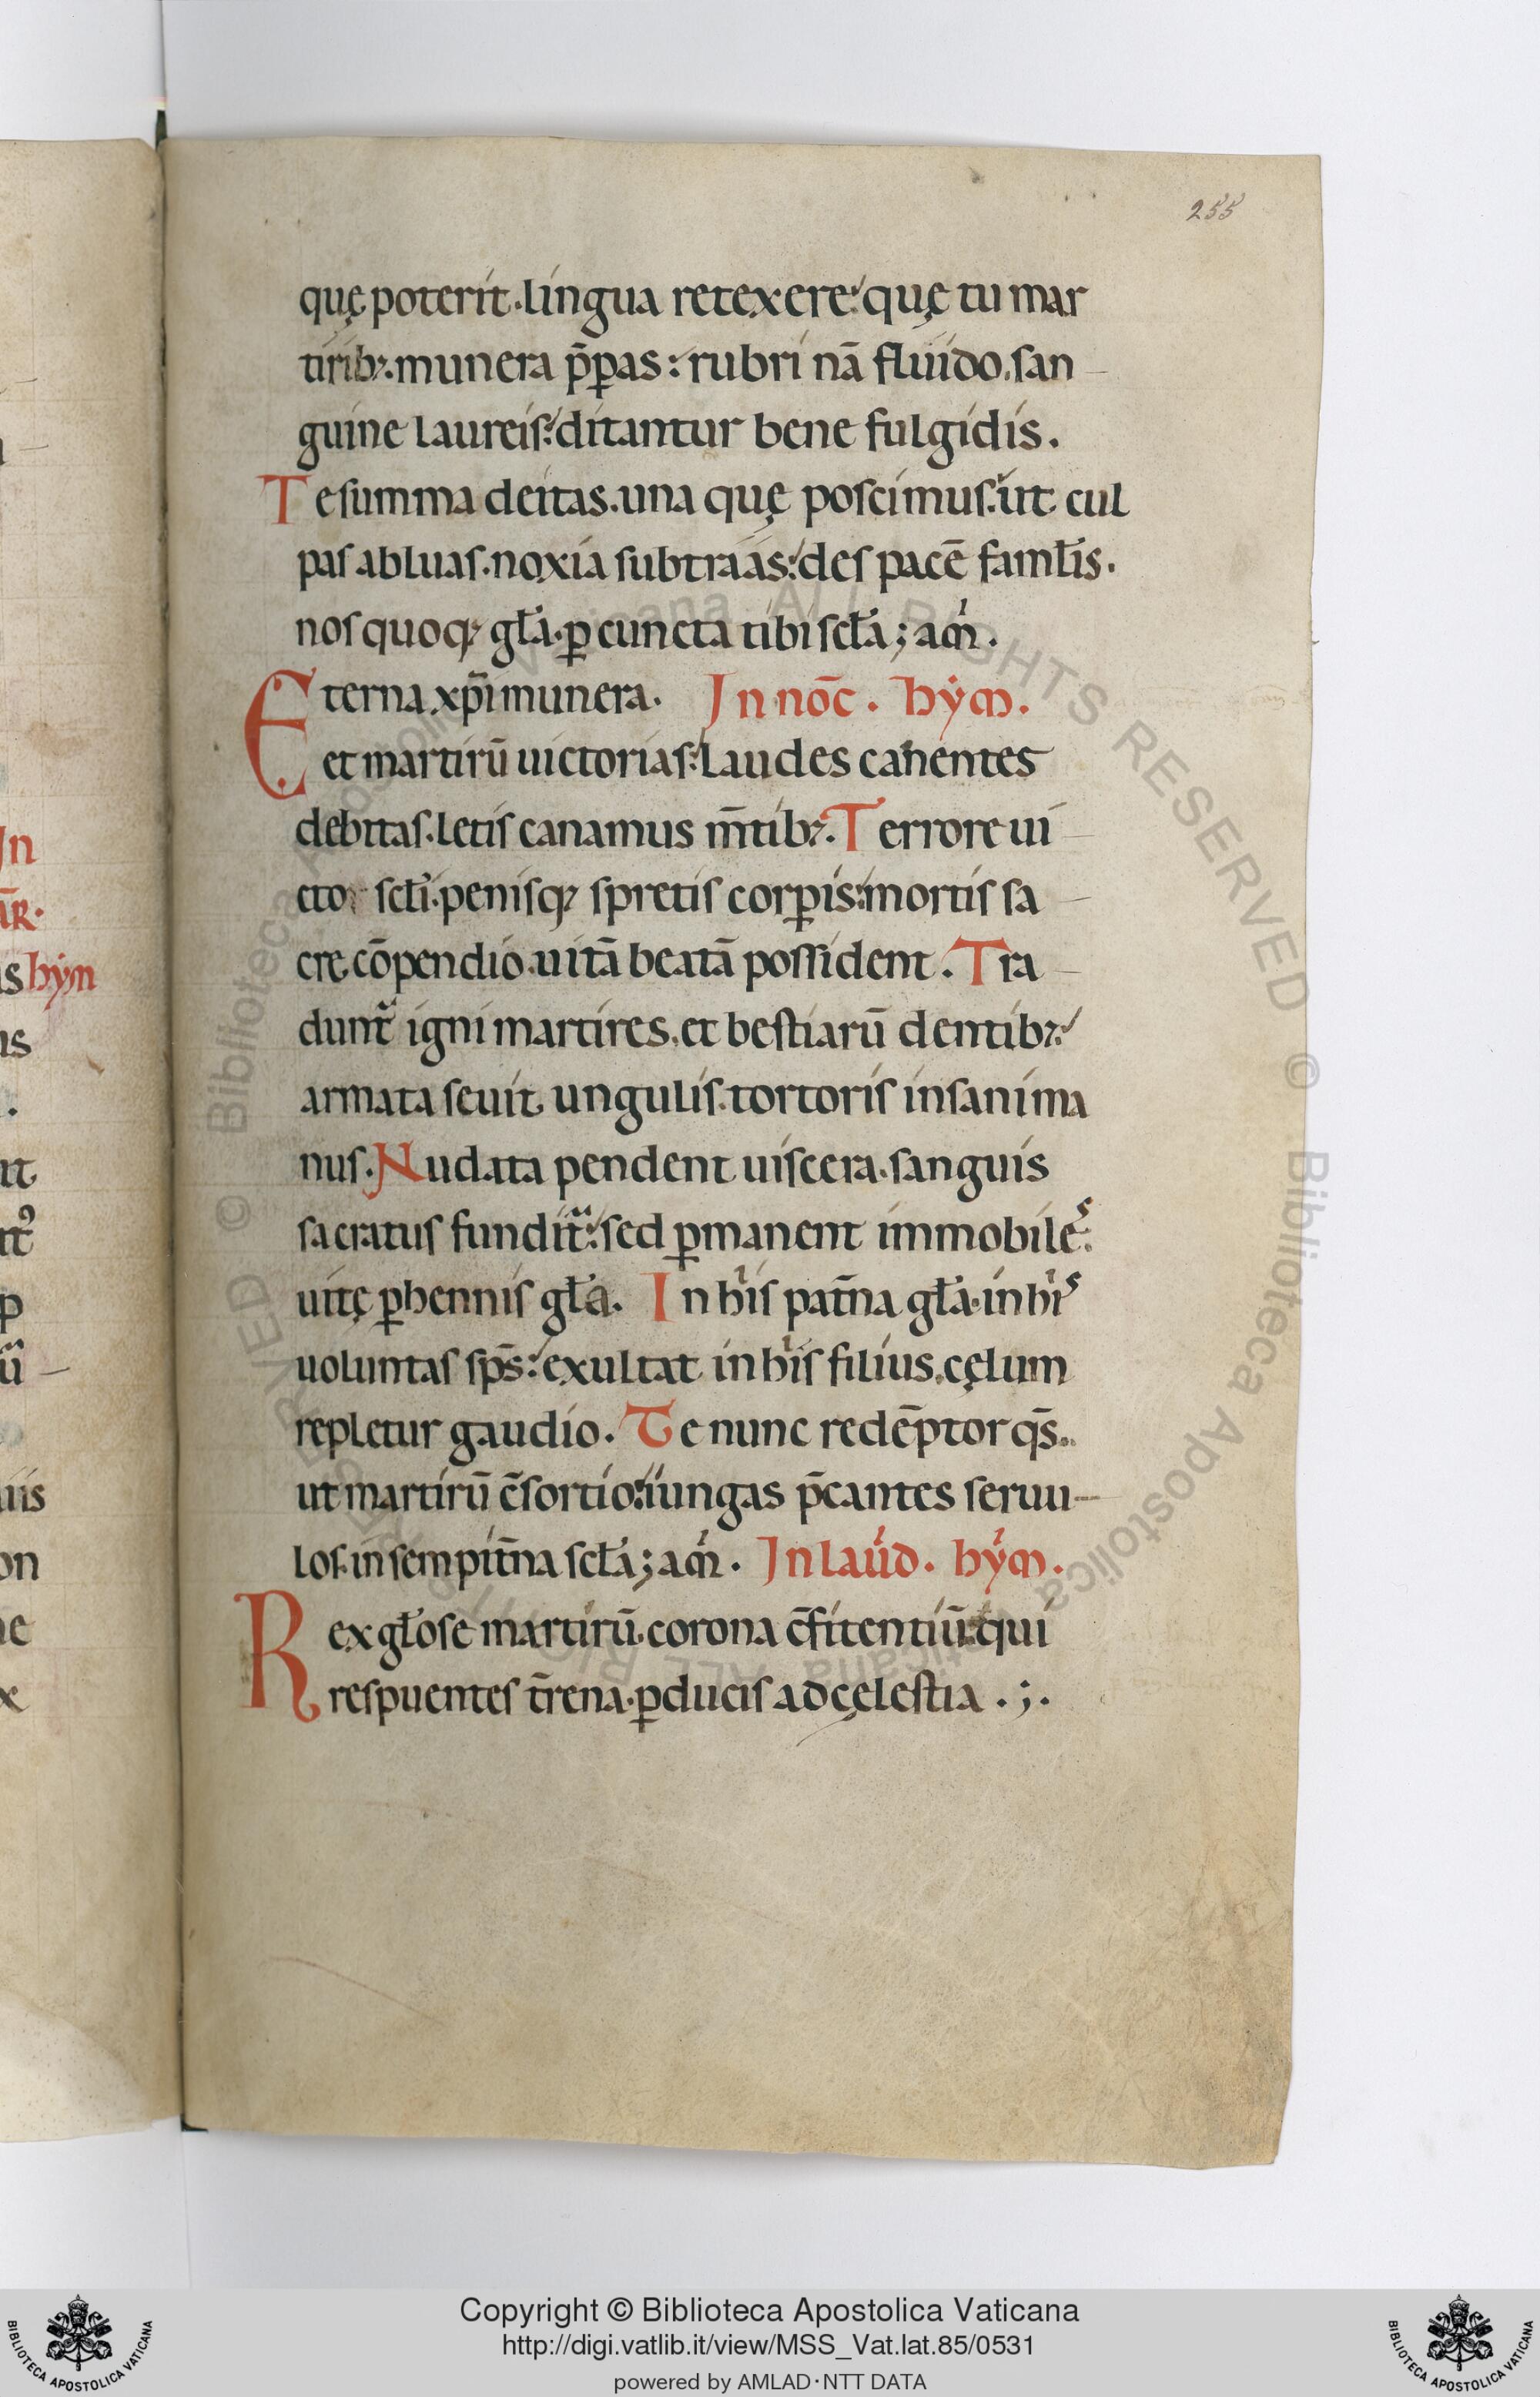 255
quę poterit. lingua retexere. quę tu mar
tirib;. munera p̄ꝑas: rubri nā fluido. san-
guine laureis. ditantur bene fulgidis.
Te summa deitas. una quę poscimus. ut cul
pas abluas. noxia subtraas. des pacē faml̄is.
nos quoq; gl̄a. ꝑ cuncta tibi scl̄a; am̄.
Eterna xp̄i munera. In noc̄. hym̄.
et martirū uictorias. Laudes canentes
debitas. letis canamus m̄tib;. Terrore ui-
cto scl̄i. penisq; spretis corꝑis. mortis sa-
cre cōpendio. uitā beatā possident. Tra-
dunt̄ igni martires. et bestiarū dentib;.
armata seuit ungulis. tortoris insani ma
nus. Nudata pendent uiscera. sanguis
sacratus fundit̄. sed ꝑmanent immobiles.
uitę ꝑhennis gl̄a. In his pat̄na gl̄a. in his
uoluntas sp̄s. exultat in his filius. cęlum
repletur gaudio. Te nunc redēptor q̄s.
ut martirū c̄sortio. iungas p̄cantes seruu-
los. in sempit̄na scl̄a; am̄. In laud̄. hym̄.
Rex gl̄ose martirū. corona c̄fitentiū. qui
respuentes t̄rena. ꝑducis ad cęlestia . ; .
Jn
ĀR.
is hym
Copyright © Biblioteca Apostolica Vaticana
http://digi.vatlib.it/view/MSS_Vat.lat.85/0531
powered by AMLAD·NTT DATA
BIBLIOTECA APOSTOLICA VATICANA
BIBLIOTECA APOSTOLICA VATICANA